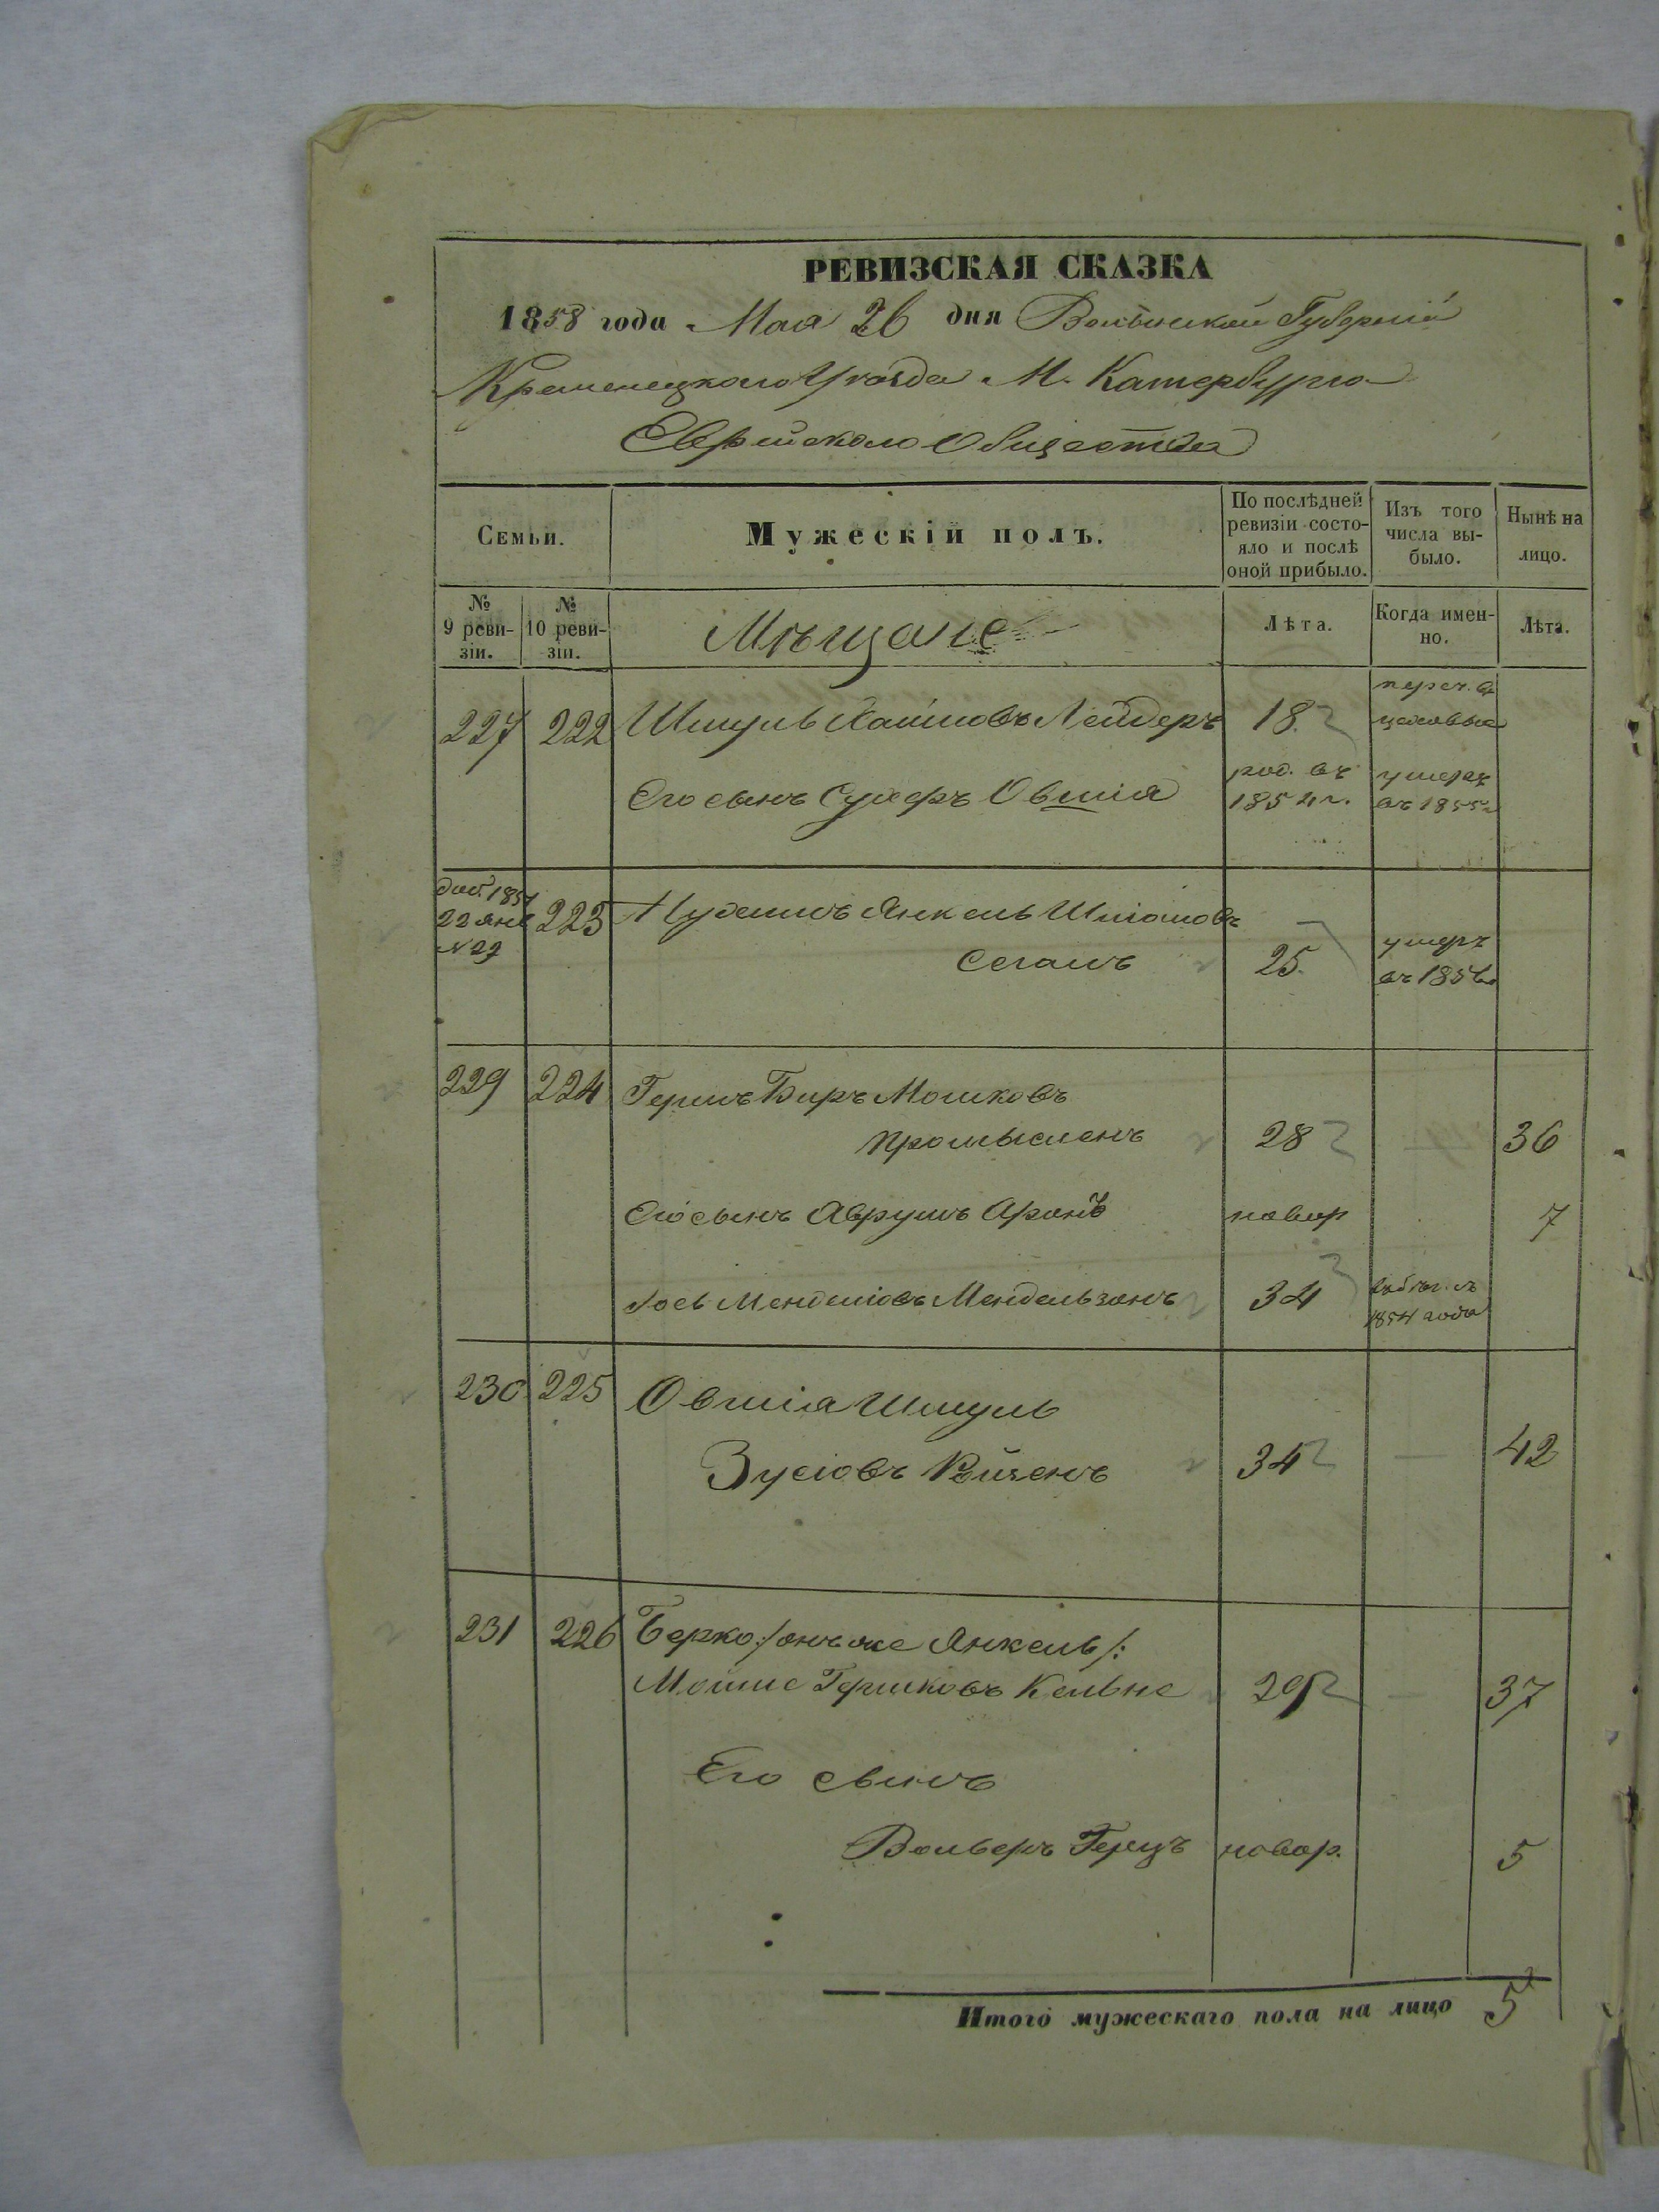 РЕВИЗСКАЯ СКАЗКА
1858 года Мая 26 дня Волынской Губерніи
Кременецкаго Уѣзда М. Катербурга
Еврейскаго Общества
Семьи.
Мужескій полъ.
По послѣдней ревизіи состо-
яло и послѣ
оной прибыло.
Изъ того
числа вы-
было.
Нынѣ на
лицо.
№
9 реви-
зіи.
№
10 реви-
зіи.
Мѣщане
Лѣта.
Когда имен-
но.
Лѣта.
227 222 Шмуль Хаимовъ Лейдеръ 18. переч. въ
цеховые
Его сынъ Сухеръ Овшія род. въ 1854 г. умеръ въ 1855 г
доп. 1851
22 янв
№ 29
223 Нусимъ Янкель Шліомовъ
Сегалъ 25. умеръ въ 185
229 224 Гершъ Беръ Мошковъ
Промысленъ 28 36
Его сынъ Аврумъ Аронъ новор 7
Іось Менделіовъ Мендельзонъ 34 съ
1854 года
230 225 Овшія Шмуль
Зусіовъ 34 42
231 226 Берко /:онъ же Янкель/:
Мошле Гершковъ Кельне 29 37
Его сынъ
Вольверъ Герцъ новор. 5
Итого мужескаго пола на лицо 5